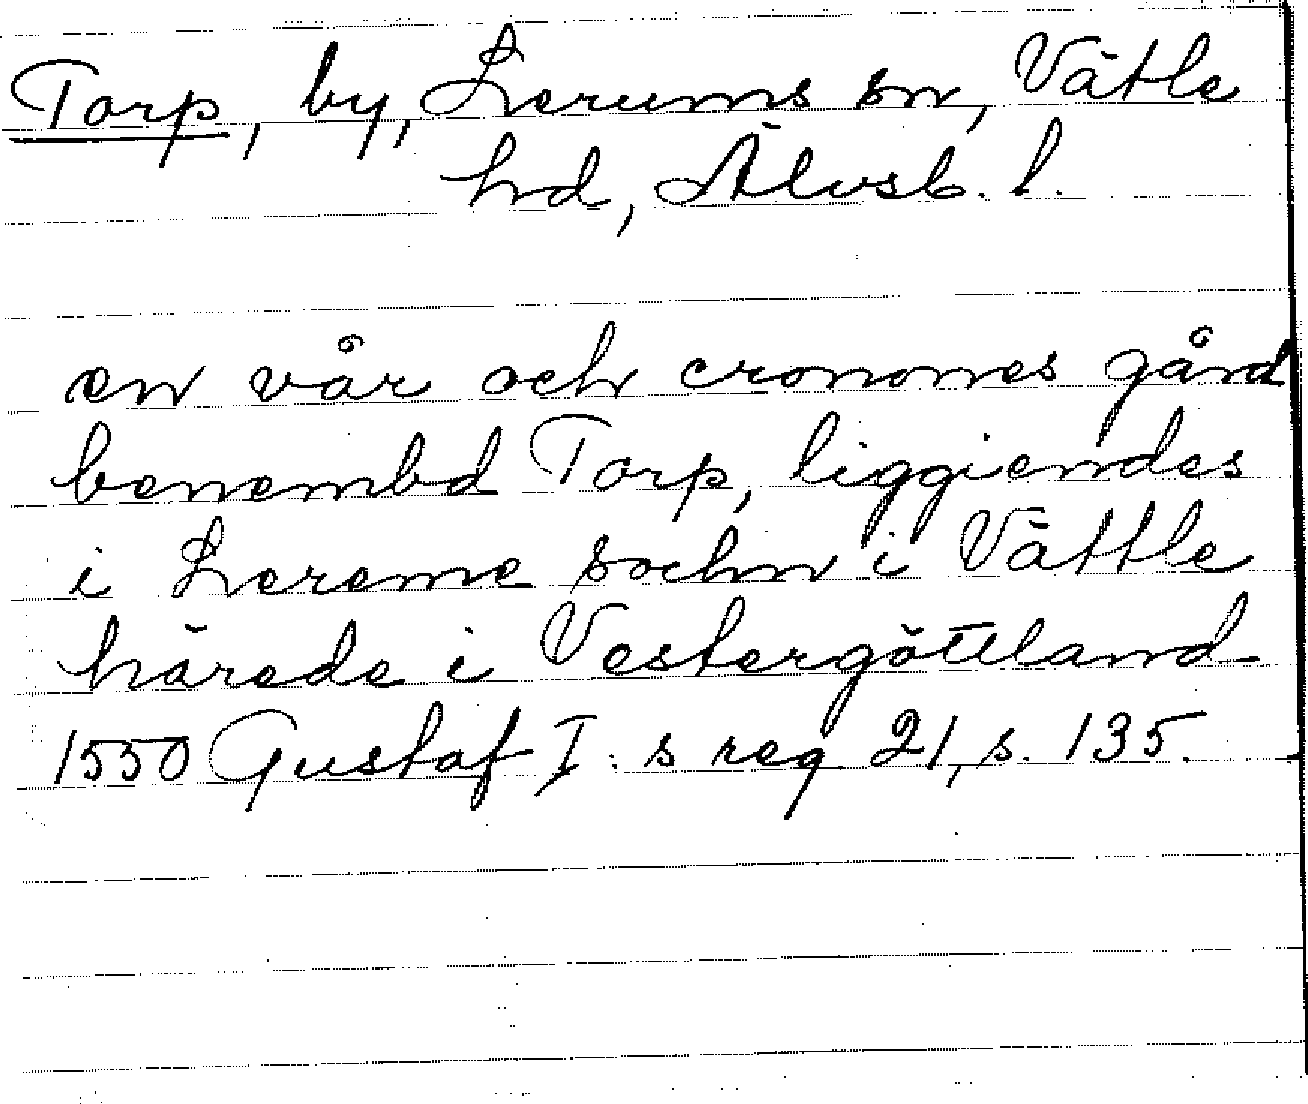 Torp, by, Lerums sn, Vätle
hd, Älvsb. l.
en vår och cronones gård
benembd Torp, liggiendes
i Lereme sochn i Vättle
härede i Vestergöttland
1550 Gustaf I:s reg 21, s. 135.